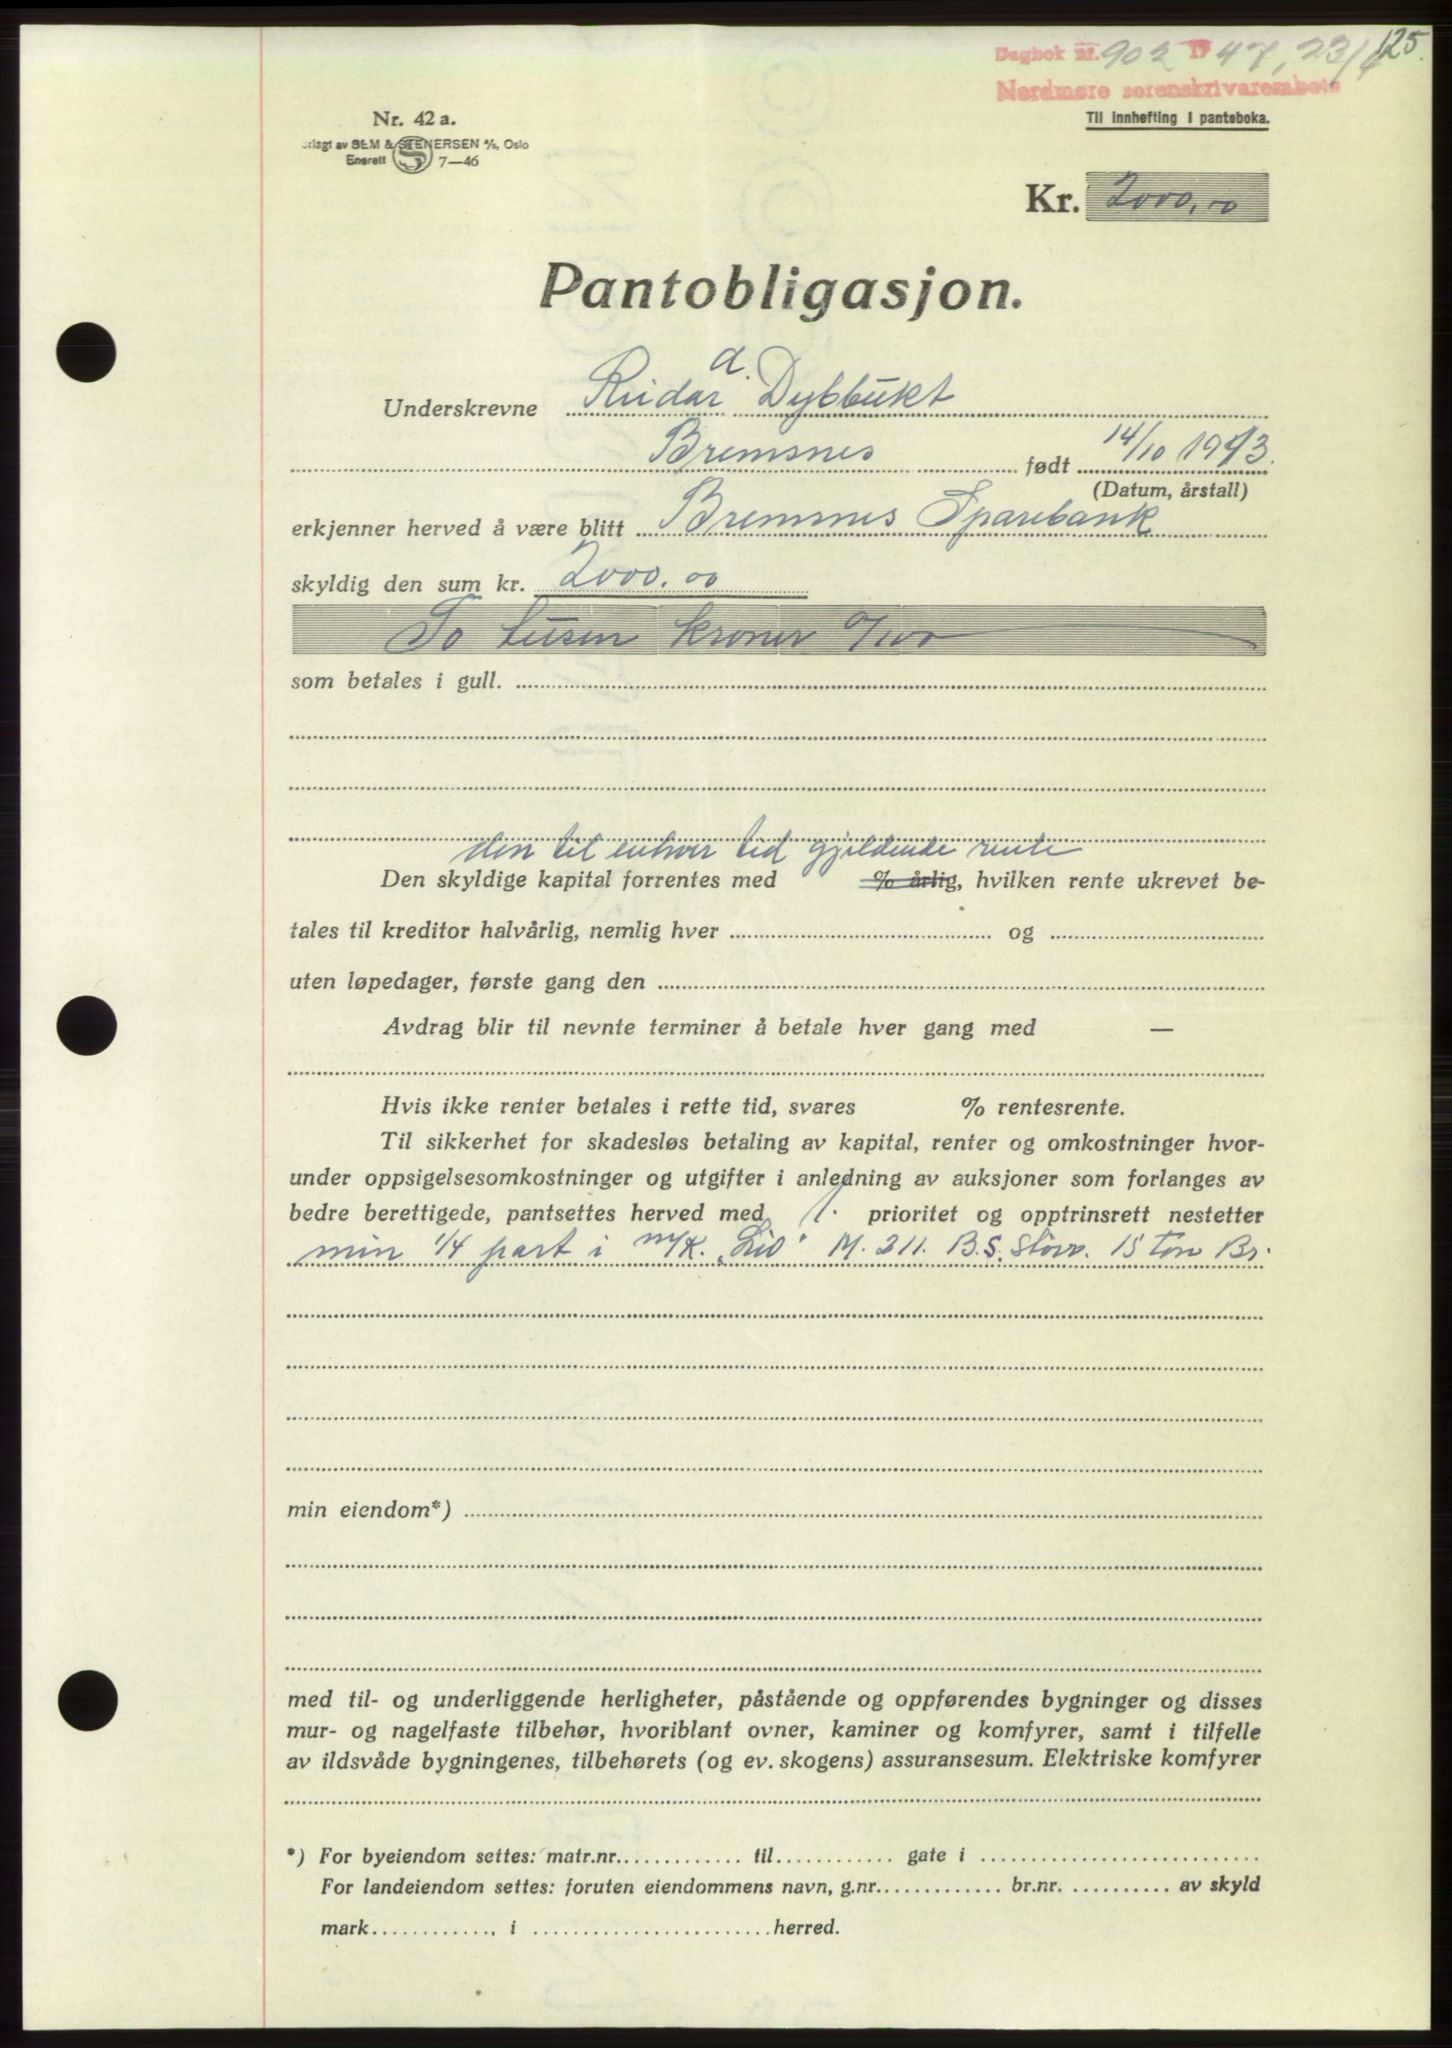 125.
Dagbok nr. 902 1947, 23/4
Nordmøre sorenskrivarembete
Nr. 42 a.
Til innhefting i panteboka.
rlagt av SEM & STENERSEN A/S, Oslo
Enerett S 7—46
Kr. 2000,00
Pantobligasjon.
a.
Underskrevne Reidar Dybbukt
Bremsnes født 14/10 1913.
(Datum, årstall)
erkjenner herved å være blitt Bremsnes Sparebank
skyldig den sum kr. 2000.00
To tusen kroner 0/100
som betales i gull.
den til enhver tid gjeldende rente
Den skyldige kapital forrentes med % årlig, hvilken rente ukrevet be-
tales til kreditor halvårlig, nemlig hver og
uten løpedager, første gang den
Avdrag blir til nevnte terminer å betale hver gang med —
Hvis ikke renter betales i rette tid, svares % rentesrente.
Til sikkerhet for skadesløs betaling av kapital, renter og omkostninger hvor-
under oppsigelsesomkostninger og utgifter i anledning av auksjoner som forlanges av
bedre berettigede, pantsettes herved med 1. prioritet og opptrinsrett nestetter
min 1/4 part i m/k. "Liv" M. 211. B.S. 15 ton Br.
min eiendom*)
med til- og underliggende herligheter, påstående og oppførendes bygninger og disses
mur- og nagelfaste tilbehør, hvoriblant ovner, kaminer og komfyrer, samt i tilfelle
av ildsvåde bygningenes, tilbehørets (og ev. skogens) assuransesum. Elektriske komfyrer
*) For byeiendom settes: matr.nr............. til............ gate i ............................
For landeiendom settes: foruten eiendommens navn, g.nr............. br.nr. .......... av skyld
mark............, i ........................herred.